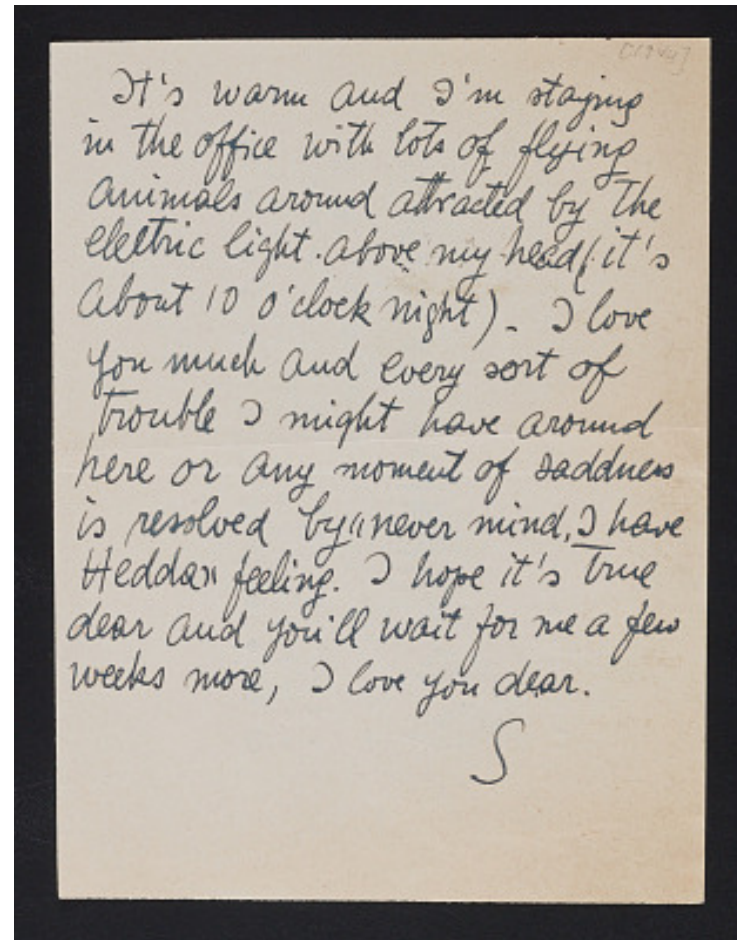 [1944]
It's warm and I'm staying
in the office with lots of flying
animals around attracted by the
electric light above my head (it's
about 10 o'clock night). I love
you much and every sort of
trouble I might have around
here or any moment of saddness
is resolved by "never mind, I have
Hedda" feeling. I hope it's true
dear and you'll wait for me a few
weeks more, I love you dear.
S